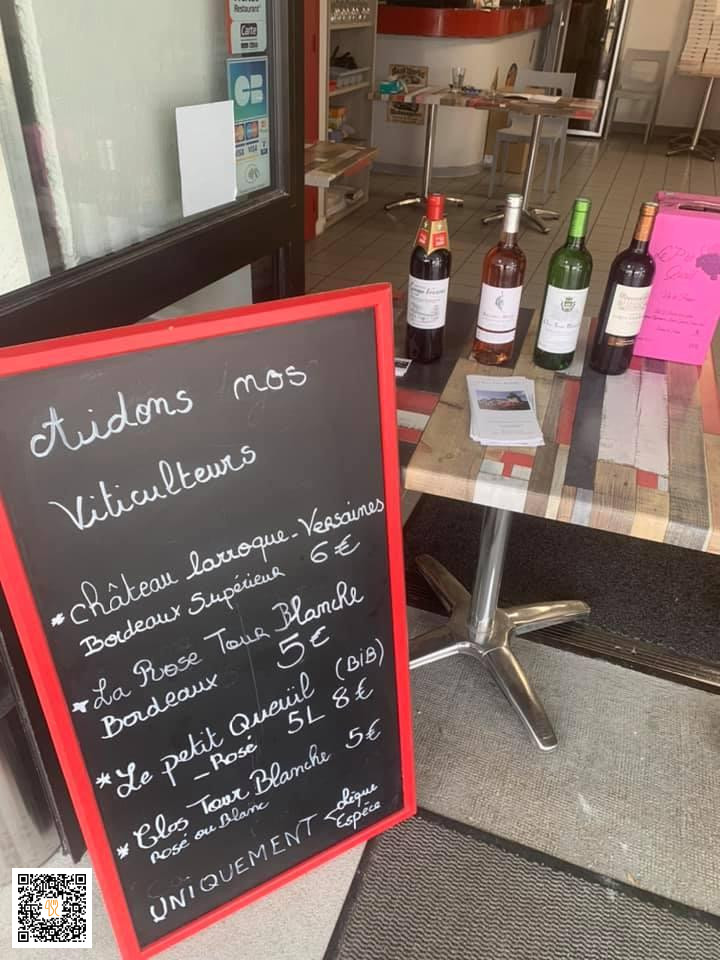 Restaurant
Carte
CB
VISA
Aidons nos
Viticulteurs
* château Larroque-Versaines
Bordeaux Supérieur 6€
* La Rose Tour Blanche
Bordeaux 5€
* Le petit Queuïl (BiB)
- Rosé 5L 8€
* Clos Tour Blanche 5€
Rosé ou Blanc
UNIQUEMENT chèque
Espèce